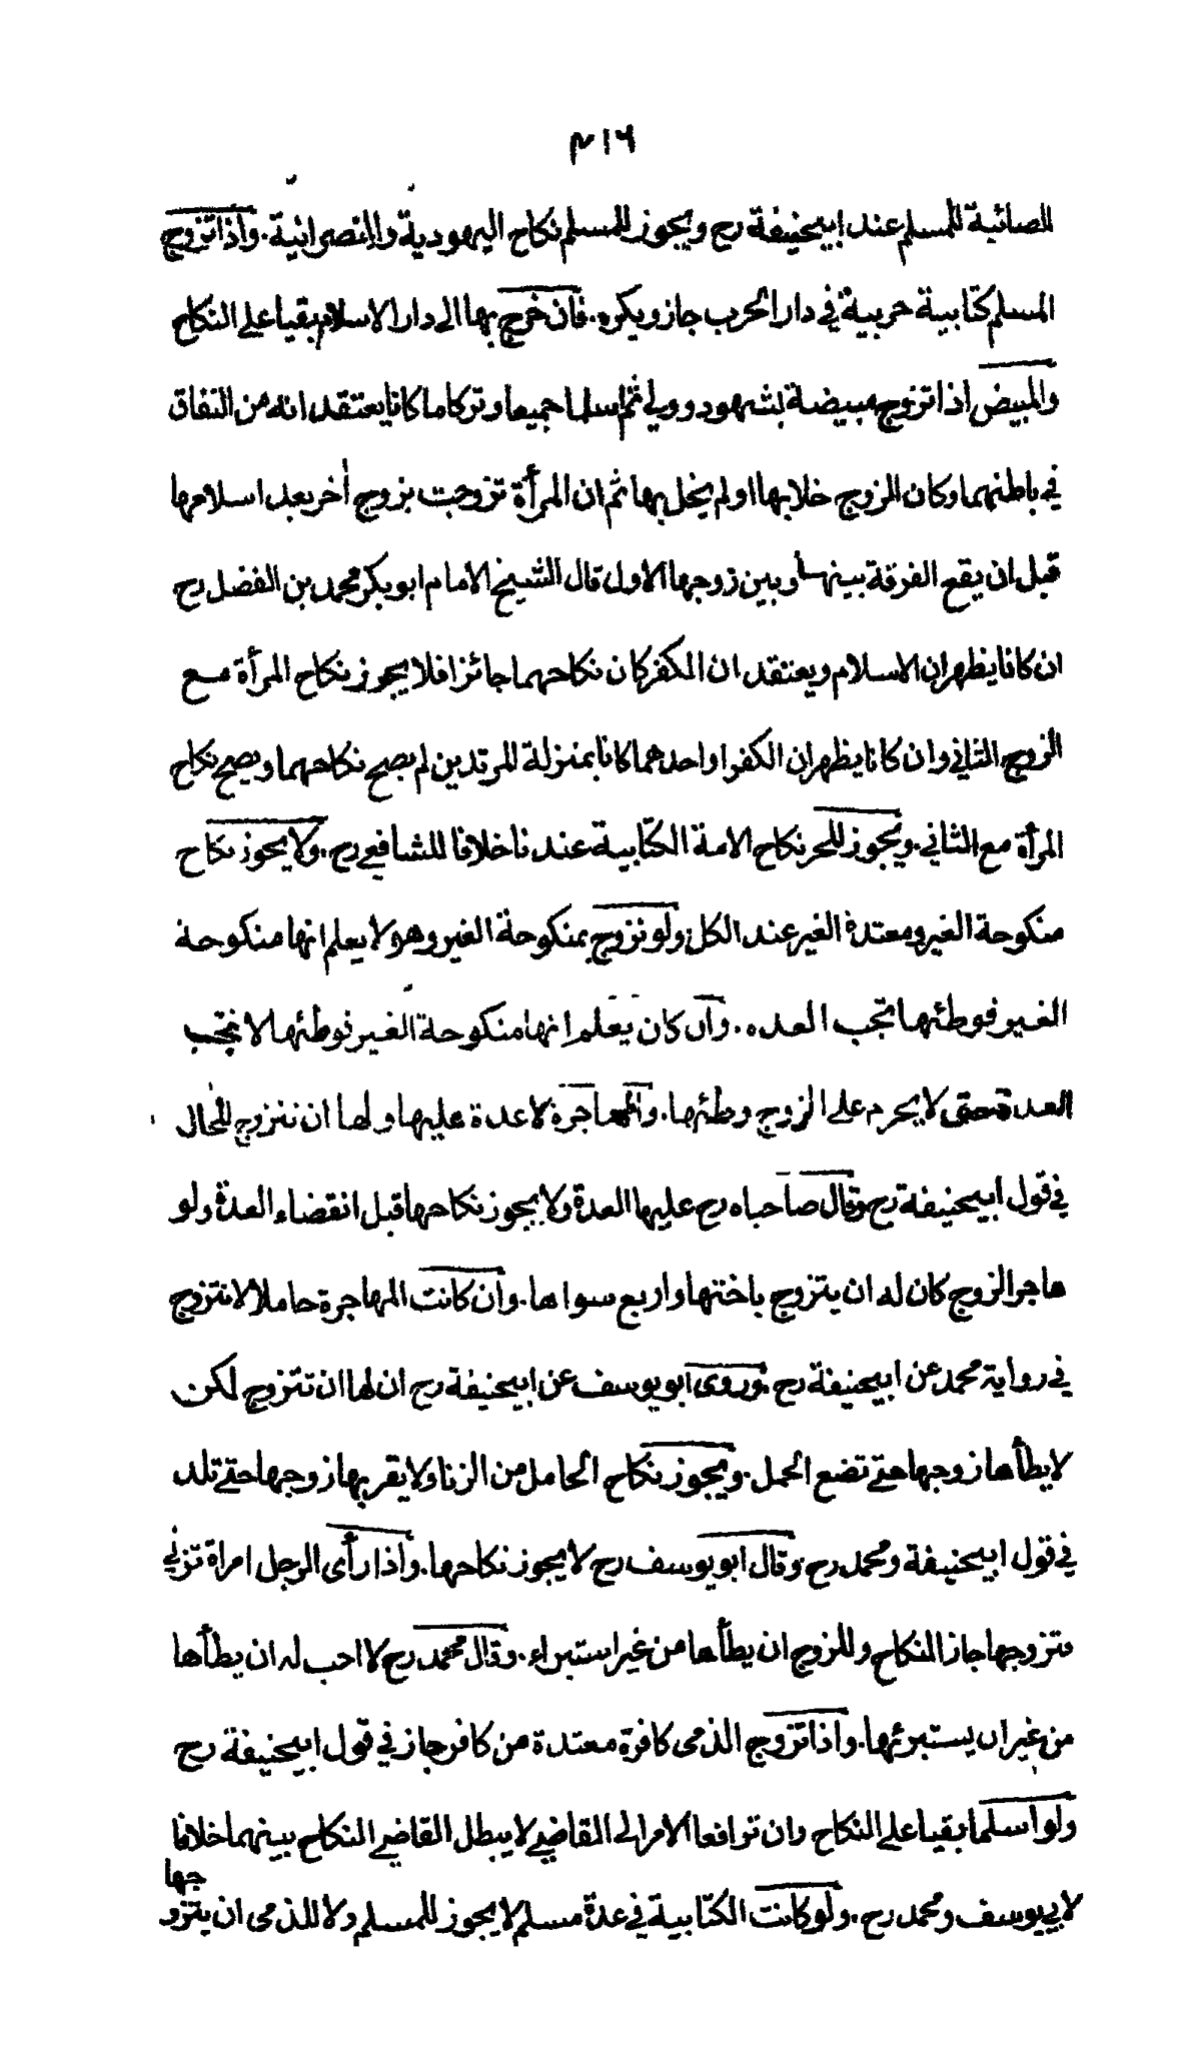 ٣١٦
الصائبة للمسلم عند ابيحنيفة رح ويجوز للمسلم نكاح اليهودية والنصرانية. واذا تزوج
المسلم كتابية حربية في دار الحرب جاز ويكره. فان خرج بها الى دار الاسلام بقيا على النكاح
والمبيض اذا تزوج مبيضة بشهود وولي ثم اسلما جميعا وتركا ما كانا يعتقد انه من النفاق
في باطنهما وكان الزوج خلا بها او لم يخل بها ثم ان المرأة تزوجت بزوج أخر بعد اسلامها
قبل ان يقع الفرقة بينها وبين زوجها الاول قال الشيخ الامام ابو بكر محمد بن الفضل رح
ان كانا يظهران الاسلام ويعتقد ان الكفر كان نكاحهما جائزا فلا يجوز نكاح المرأة مع
الزوج الثاني وان كانا يظهران الكفر او احدهما كانا بمنزلة المرتدين لم يصح نكاحهما ويصح نكاح
المرأة مع الثاني. ويجوز للحر نكاح الامة الكتابية عندنا خلافا للشافعي رح. ولا يجوز نكاح
منكوحة الغير ومعتدة الغير عند الكل ولو تزوج بمنكوحة الغير وهو لا يعلم انها منكوحة
الغير فوطئها تجب العده. وان كان يعلم انها منكوحة الغير فوطئها لا تجب
العدة حتى لا يحرم على الزوج وطئها. والمهاجرة لا عدة عليها ولها ان تتزوج للحال
في قول ابيحنيفة رح وقال صاحباه رح عليها العدة ولا يجوز نكاحها قبل انقضاء العدة ولو
هاجر الزوج كان له ان يتزوج باختها واربع سواها. وان كانت المهاجرة حاملا لا تتزوج
في رواية محمد عن ابيحنيفة رح. وروى ابو يوسف عن ابيحنيفة رح ان لها ان تتزوج لكن
لا يطأها زوجها حتى تضع الحمل. ويجوز نكاح الحامل من الزنا ولا يقربها زوجها حتى تلد
في قول ابيحنيفة ومحمد رح وقال ابو يوسف رح لا يجوز نكاحها. واذا رأى الرجل امراة تزني
فتزوجها جاز النكاح وللزوج ان يطأها من غير استبراء. وقال محمد رح لا احب له ان يطأها
من غير ان يستبرئها. واذا تزوج الذمى كافرة معتدة من كافر جاز في قول ابيحنيفة رح
ولو اسلما بقيا على النكاح وان ترافعا الامر الى القاضي لا يبطل القاضي النكاح بينهما خلافا
لابي يوسف ومحمد رح. ولو كانت الكتابية في عدة مسلم لا يجوز للمسلم ولا للذمى ان يتزو
جها